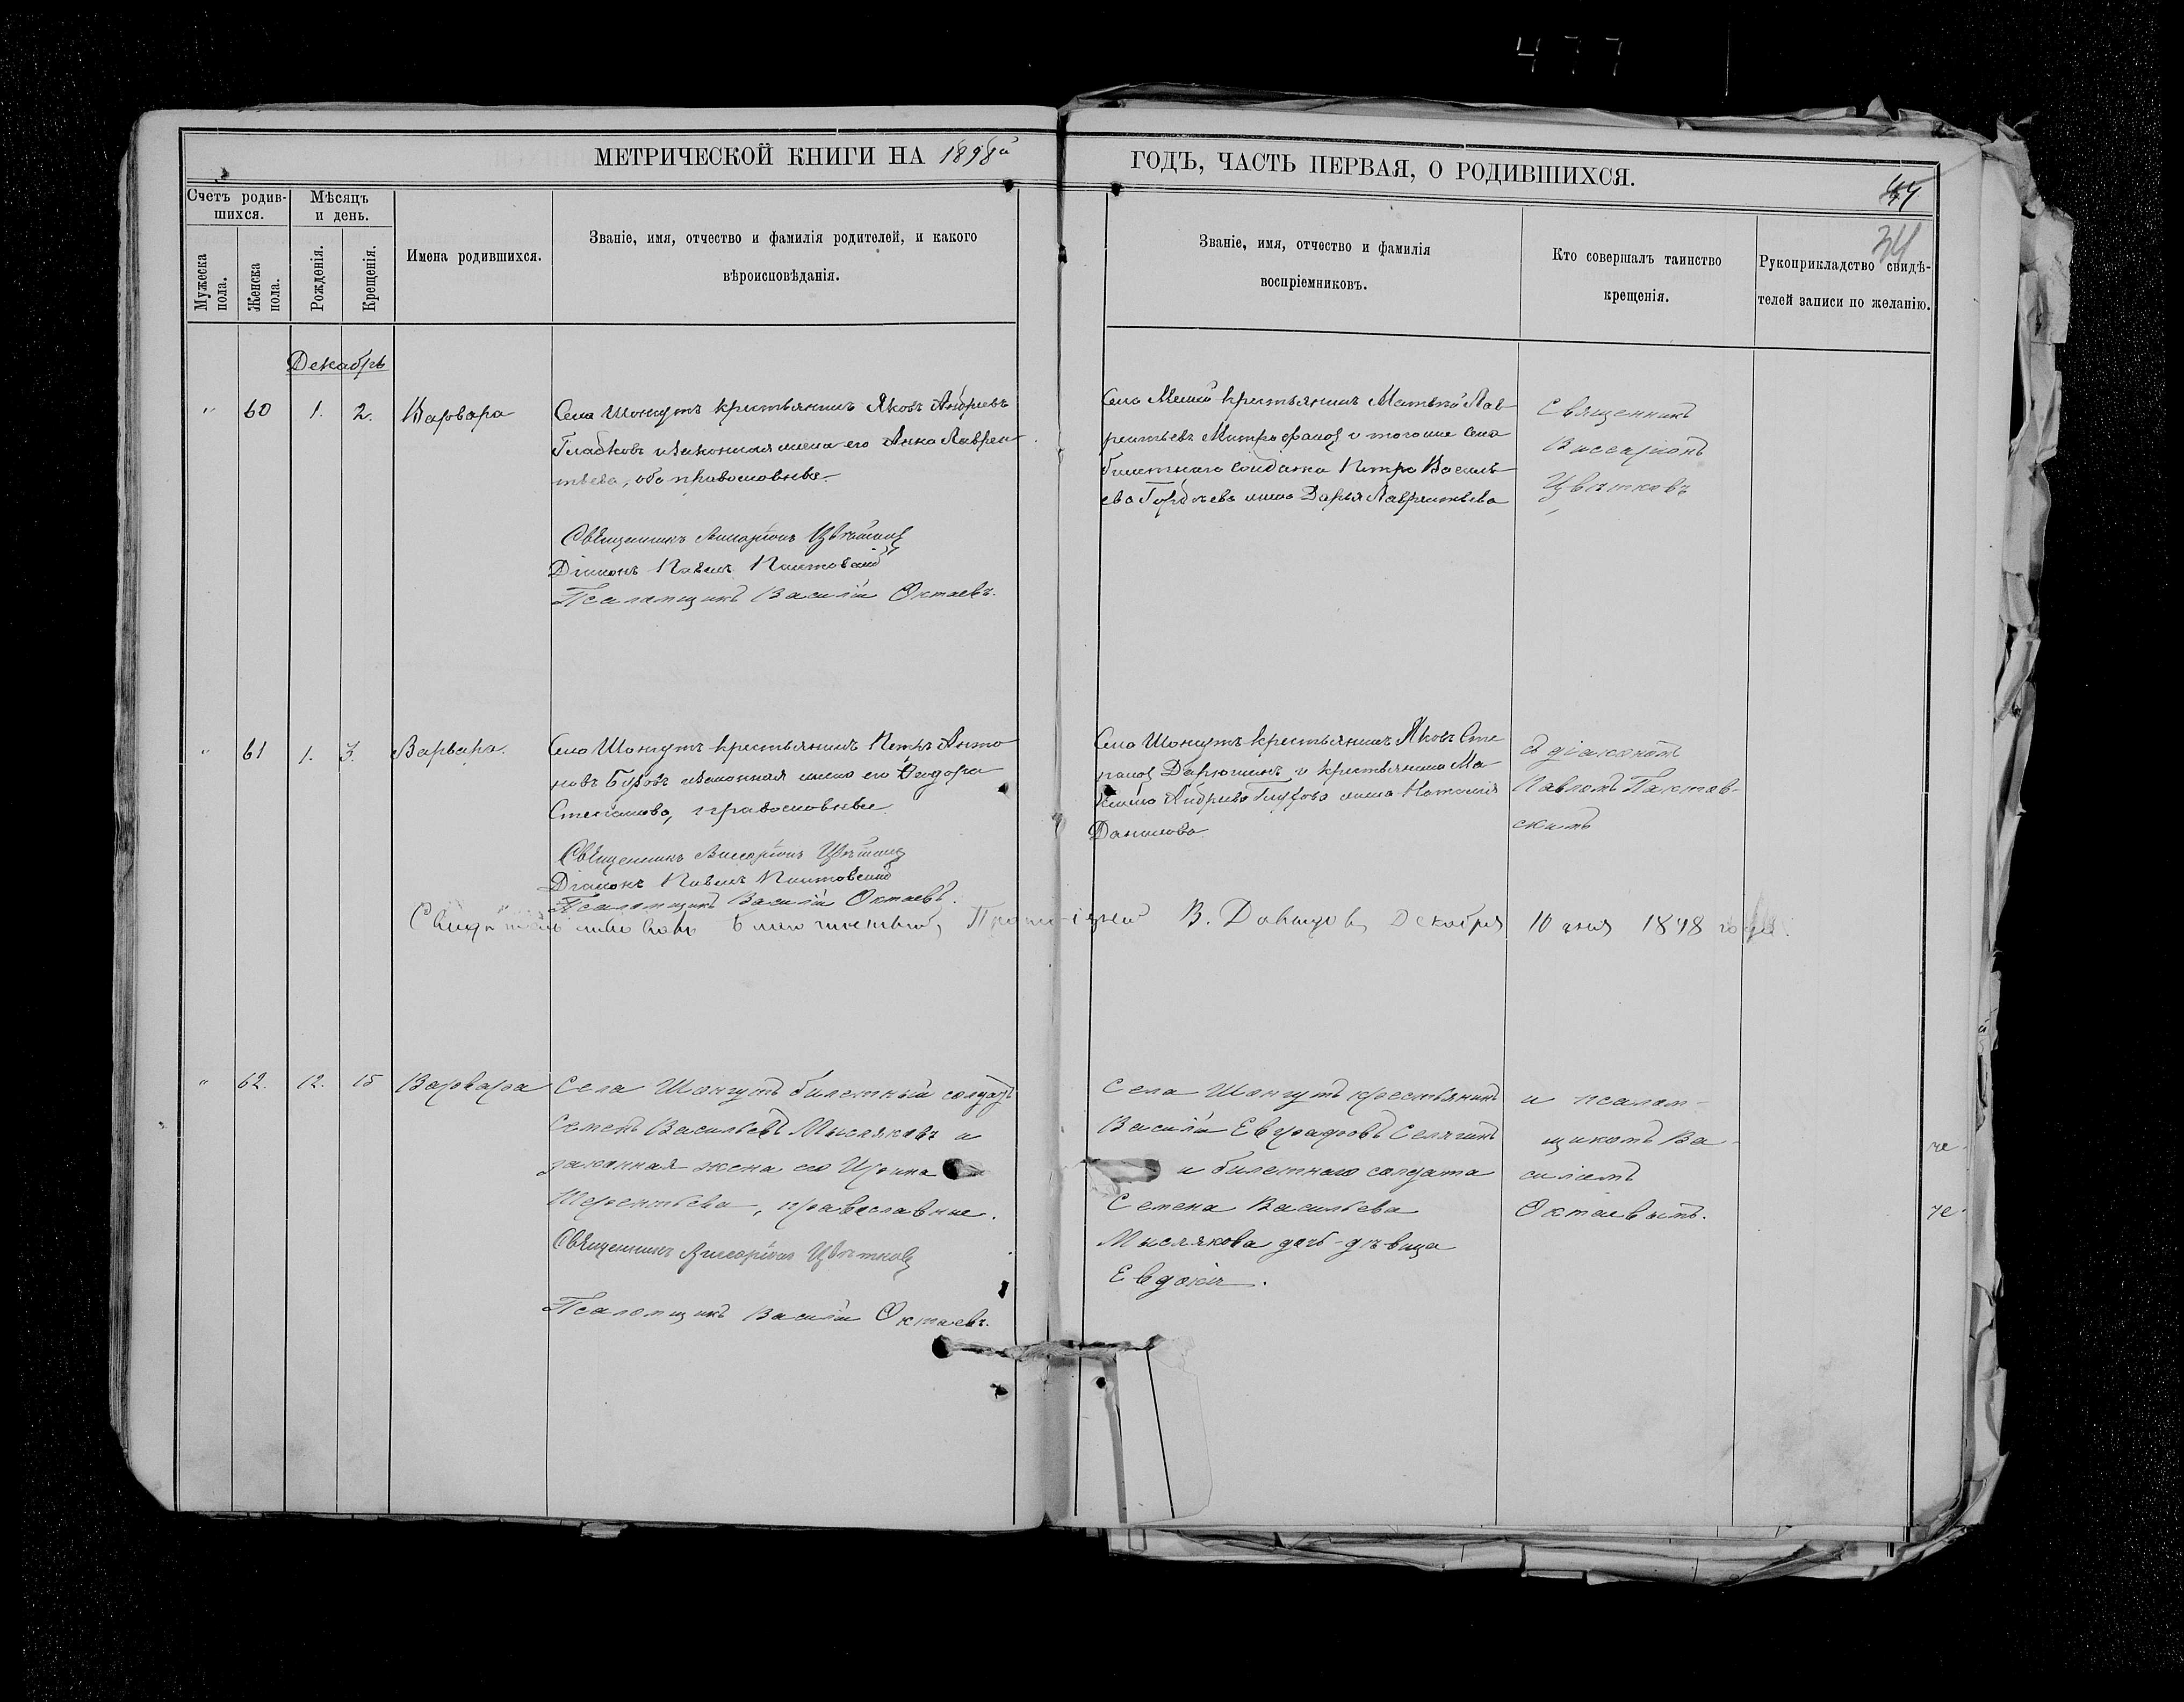 477
МЕТРИЧЕСКОЙ КНИГИ НА 1898й
ГОДЪ, ЧАСТЬ ПЕРВАЯ, О РОДИВШИХСЯ.
Счетъ родив-
шихся.
Мѣсяцъ
и день.
Мужеска
пола.
Женска
пола.
Рожденія.
Крещенія.
Имена родившихся.
Званіе, имя, отчество и фамилія родителей, и какого
вѣроисповѣданія.
Званіе, имя, отчество и фамилія
воспріемниковъ.
Кто совершалъ таинство
крещенія.
Рукоприкладство свидѣ-
телей записи по желанію.
34
Декабрь
" 60 1. 2. Варвара
Села Шонгутъ крестьянинъ Яковъ Андреевъ
Гладковъ и законная жена его Анна Лаврен
тьева, оба православные.
Священникъ Виссаріонъ Цвѣтковъ
Діаконъ Павелъ
Псаломщикъ Василій Октаевъ.
Села крестьянинъ Матвѣй Лав
рентьевъ Митрофановъ и того же села
билетнаго солдата Петра Василь
ева жена Дарья Лаврентьева
Священникъ
Виссаріонъ
Цвѣтковъ
" 61 1. 3. Варвара.
Села Шонгутъ крестьянинъ Петръ Анто
новъ и законная жена его Ѳеодора
Степанова, православные.
Священникъ Виссаріонъ Цвѣтковъ
Діаконъ Павелъ
Псаломщикъ Василій Октаевъ.
Села Шонгутъ крестьянинъ Яковъ Сте
пановъ и крестьянина Ма
Андреева жена Наталія
Данилова
съ діакономъ
Павломъ Пактов-
скимъ
Свидѣтельствовалъ Благочинный, Протоіерей В. Давыдовъ Декабря 10 дня 1898 года.
" 62. 12. 15 Варвара
Села Шонгутъ билетный солдатъ
Семенъ Васильевъ Мысляковъ и
законная жена его Ирина
Терентьева, православные.
Священникъ Виссаріонъ Цвѣтковъ
Псаломщикъ Василій Октаевъ.
Села Шонгутъ крестьянинъ
Василій Евграфовъ Селягинъ
и билетнаго солдата
Семена Васильева
Мыслякова дочь-дѣвица
Евдокія.
и псалом-
щикомъ Ва-
силіемъ
Октаевымъ.